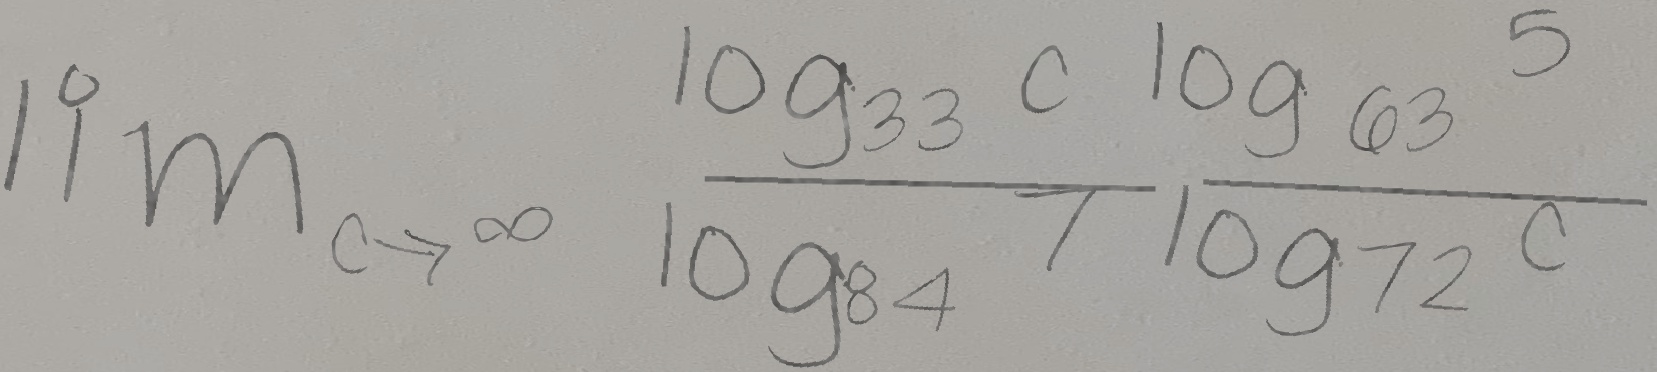 lim c→∞ log33 c / log84 7 log63 5 / log72 c